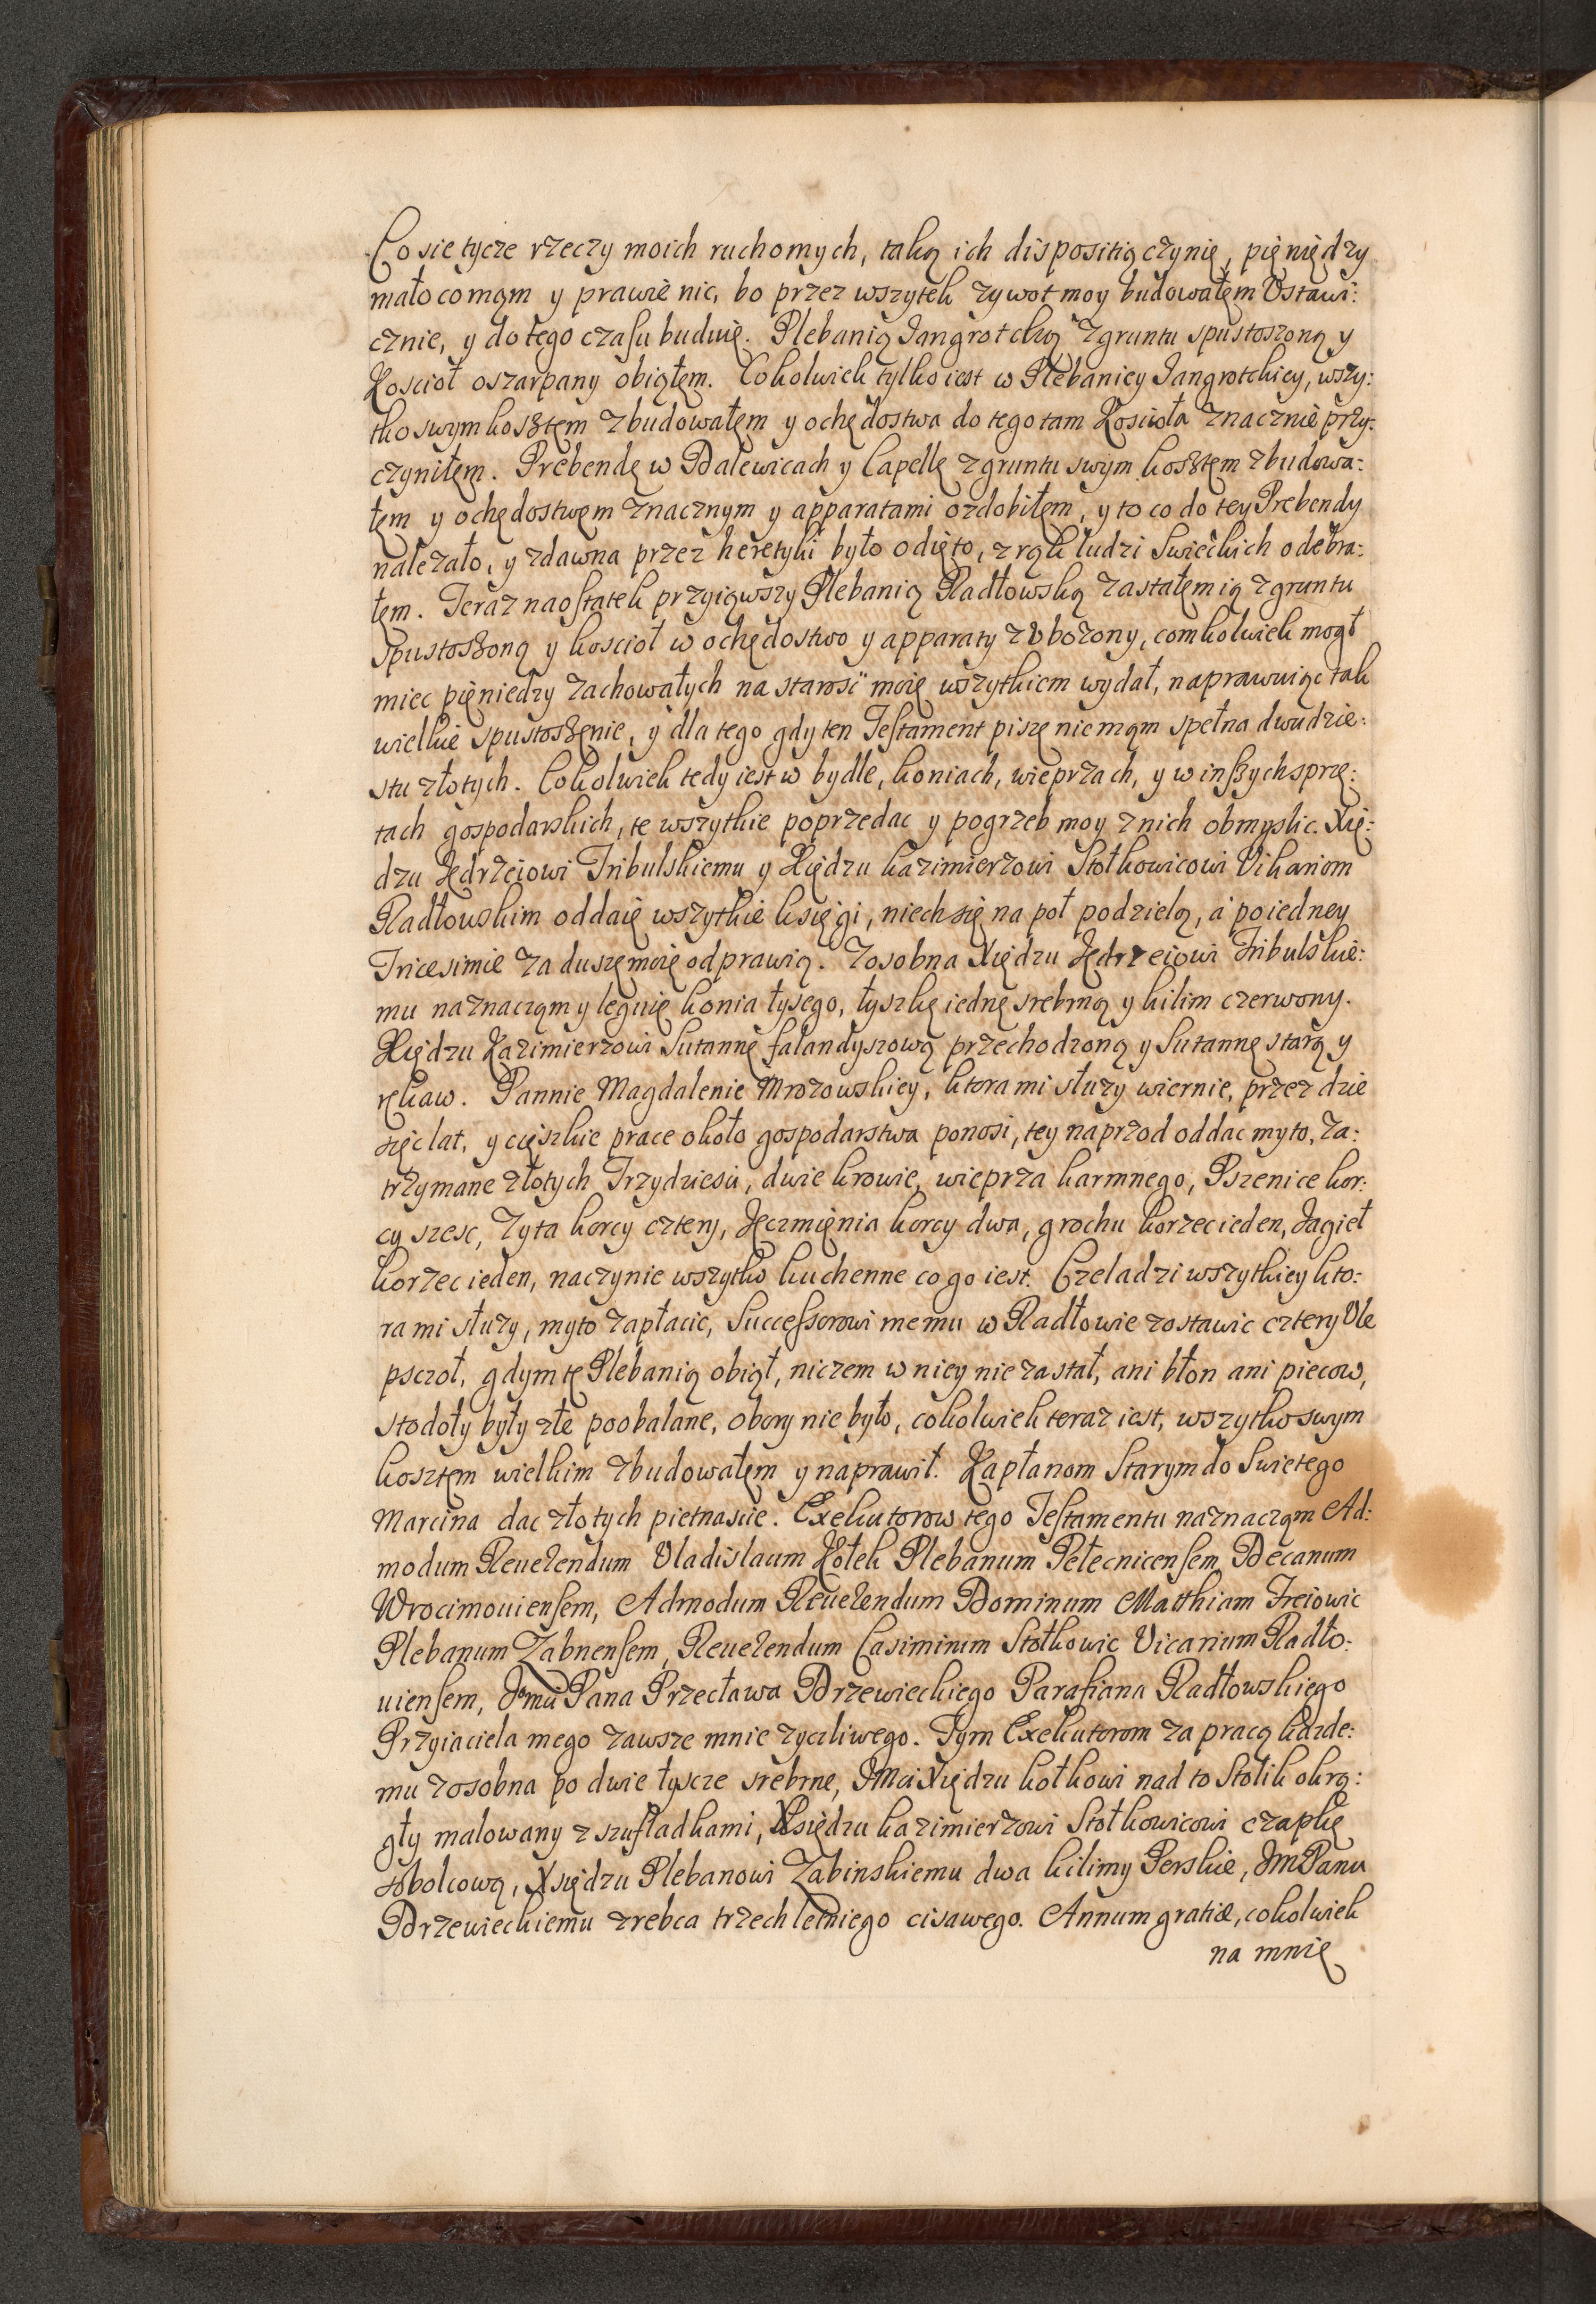 Co sie tycze rzeczy moich ruchomych, taką ich dispositią czynię, pięniędzy
mało co mąm y prawie nic, bo przez wszytek zywot moy budowałęm Vstawi:
cznie, y do tego czasu buduię. Plebanią Jangrotcką z gruntu spustoszoną y
Koscioł oszarpany obiąłęm. Cokolwiek tylko iest w Plebaniey Jangrotckiey, wszy:
tko swym kosztęm zbudowałęm y ochędostwa do tego tam Kościoła znacznie przy:
czyniłęm. Prebendę w Dalewicach y Capellę z gruntu swym kosztęm zbudowa:
łęm y ochędostwęm znacznym y apparatami ozdobiłęm, y to co do tey Prebendy
nalezało, y zdawna przez heretyki było odięto, z rąk ludzi Swieckich odebra:
łęm. Teraz naostatek przyiąwszy Plebanią Radłowską zastałęm ią z gruntu
spustoszoną y kościoł w ochędostwo y apparaty zVbozony, comkolwiek mogł
miec pięniedzy zachowałych na starość moię wszytkiem wydał, naprawuiąc tak
wielkie spustoszęnie, y dla tego gdy ten Testament piszę nie mąm spełna dwudzie:
stu złotych. Cokolwiek tedy iest w bydle, koniach, wieprzach, y w inszych sprzę:
tach gospodarskich, te wszytkie poprzedac y pogrzeb moy z nich obmyslic. Xię:
dzu Jędrzeiowi Tribulskiemu y Xiędzu kazimierzowi Stołkowicowi Vikariom
Radłowskim oddaię wszytkie księgi, niech się na poł podzielą, a poiedney
Tricesimie za duszę moię odprawią. Zosobna Xiędzu Jędrzeiowi Tribulskie:
mu naznacząm y leguię konia łysego, łyszkę iednę srebrną y kilim czerwony.
Xiędzu Kazimierzowi Sutannę falandyszową przechodzoną y Sutannę starą y
rękaw. Pannie Magdalenie Mrozowskiey, ktora mi słuzy wiernie, przez dzie
sięc lat, y cięszkie prace około gospodarstwa ponosi, tey naprzod oddac myto, za:
trzymane złotych Trzydziesci, dwie krowie, wieprza karmnego, Pszenice kor:
cy szesc, Zyta korcy cztery, Jęczmięnia korcy dwa, grochu korzec ieden, Jagieł
korzec ieden, naczynie wszytko kuchenne co go iest. Czeladzi wszytkiey kto:
ra mi słuzy, myto zapłacic, Successorowi memu w Radłowie zostawic cztery Vle
psczoł, gdym tę Plebanią obiął, niczem w niey nie zastał, ani błon ani piecow,
stodoły były złe poobalane, obory nie było, cokolwiek teraz iest, wszytko swym
kosztęm wielkim zbudowałęm y naprawił. Kapłanom Starym do Swietego
Marcina dac złotych pietnascie. Exekutorow tego Testamentu naznacząm Ad:
modum Reuerendum Vladislaum Kołek Plebanum Pełecnicensem Decanum
Wrocimouiensem, Admodum Reuerendum Dominum Matthiam Freiowic
Plebanum Zabnensem, Reuerendum Casimirum Stołkowic Vicarium Radło:
uiensem, Jmci Pana Przecława Drzewieckiego Parafiana Radłowskiego
Przyiaciela mego zawsze mnie zyczliwego. Tym Exekutorom za pracą kazde:
mu zosobna po dwie łyscze srebrne, JMci Xiędzu kołkowi nad to Stolik okrą:
gły malowany z szufladkami, Xsiędzu kazimierzowi Stołkowicowi czapkę
sobolcową, Xsiędzu Plebanowi Zabinskiemu dwa kilimy Perskie, JmPanu
Drzewieckiemu zrebca trzechletniego cisawego. Annum gratiæ, cokolwiek
na mnię